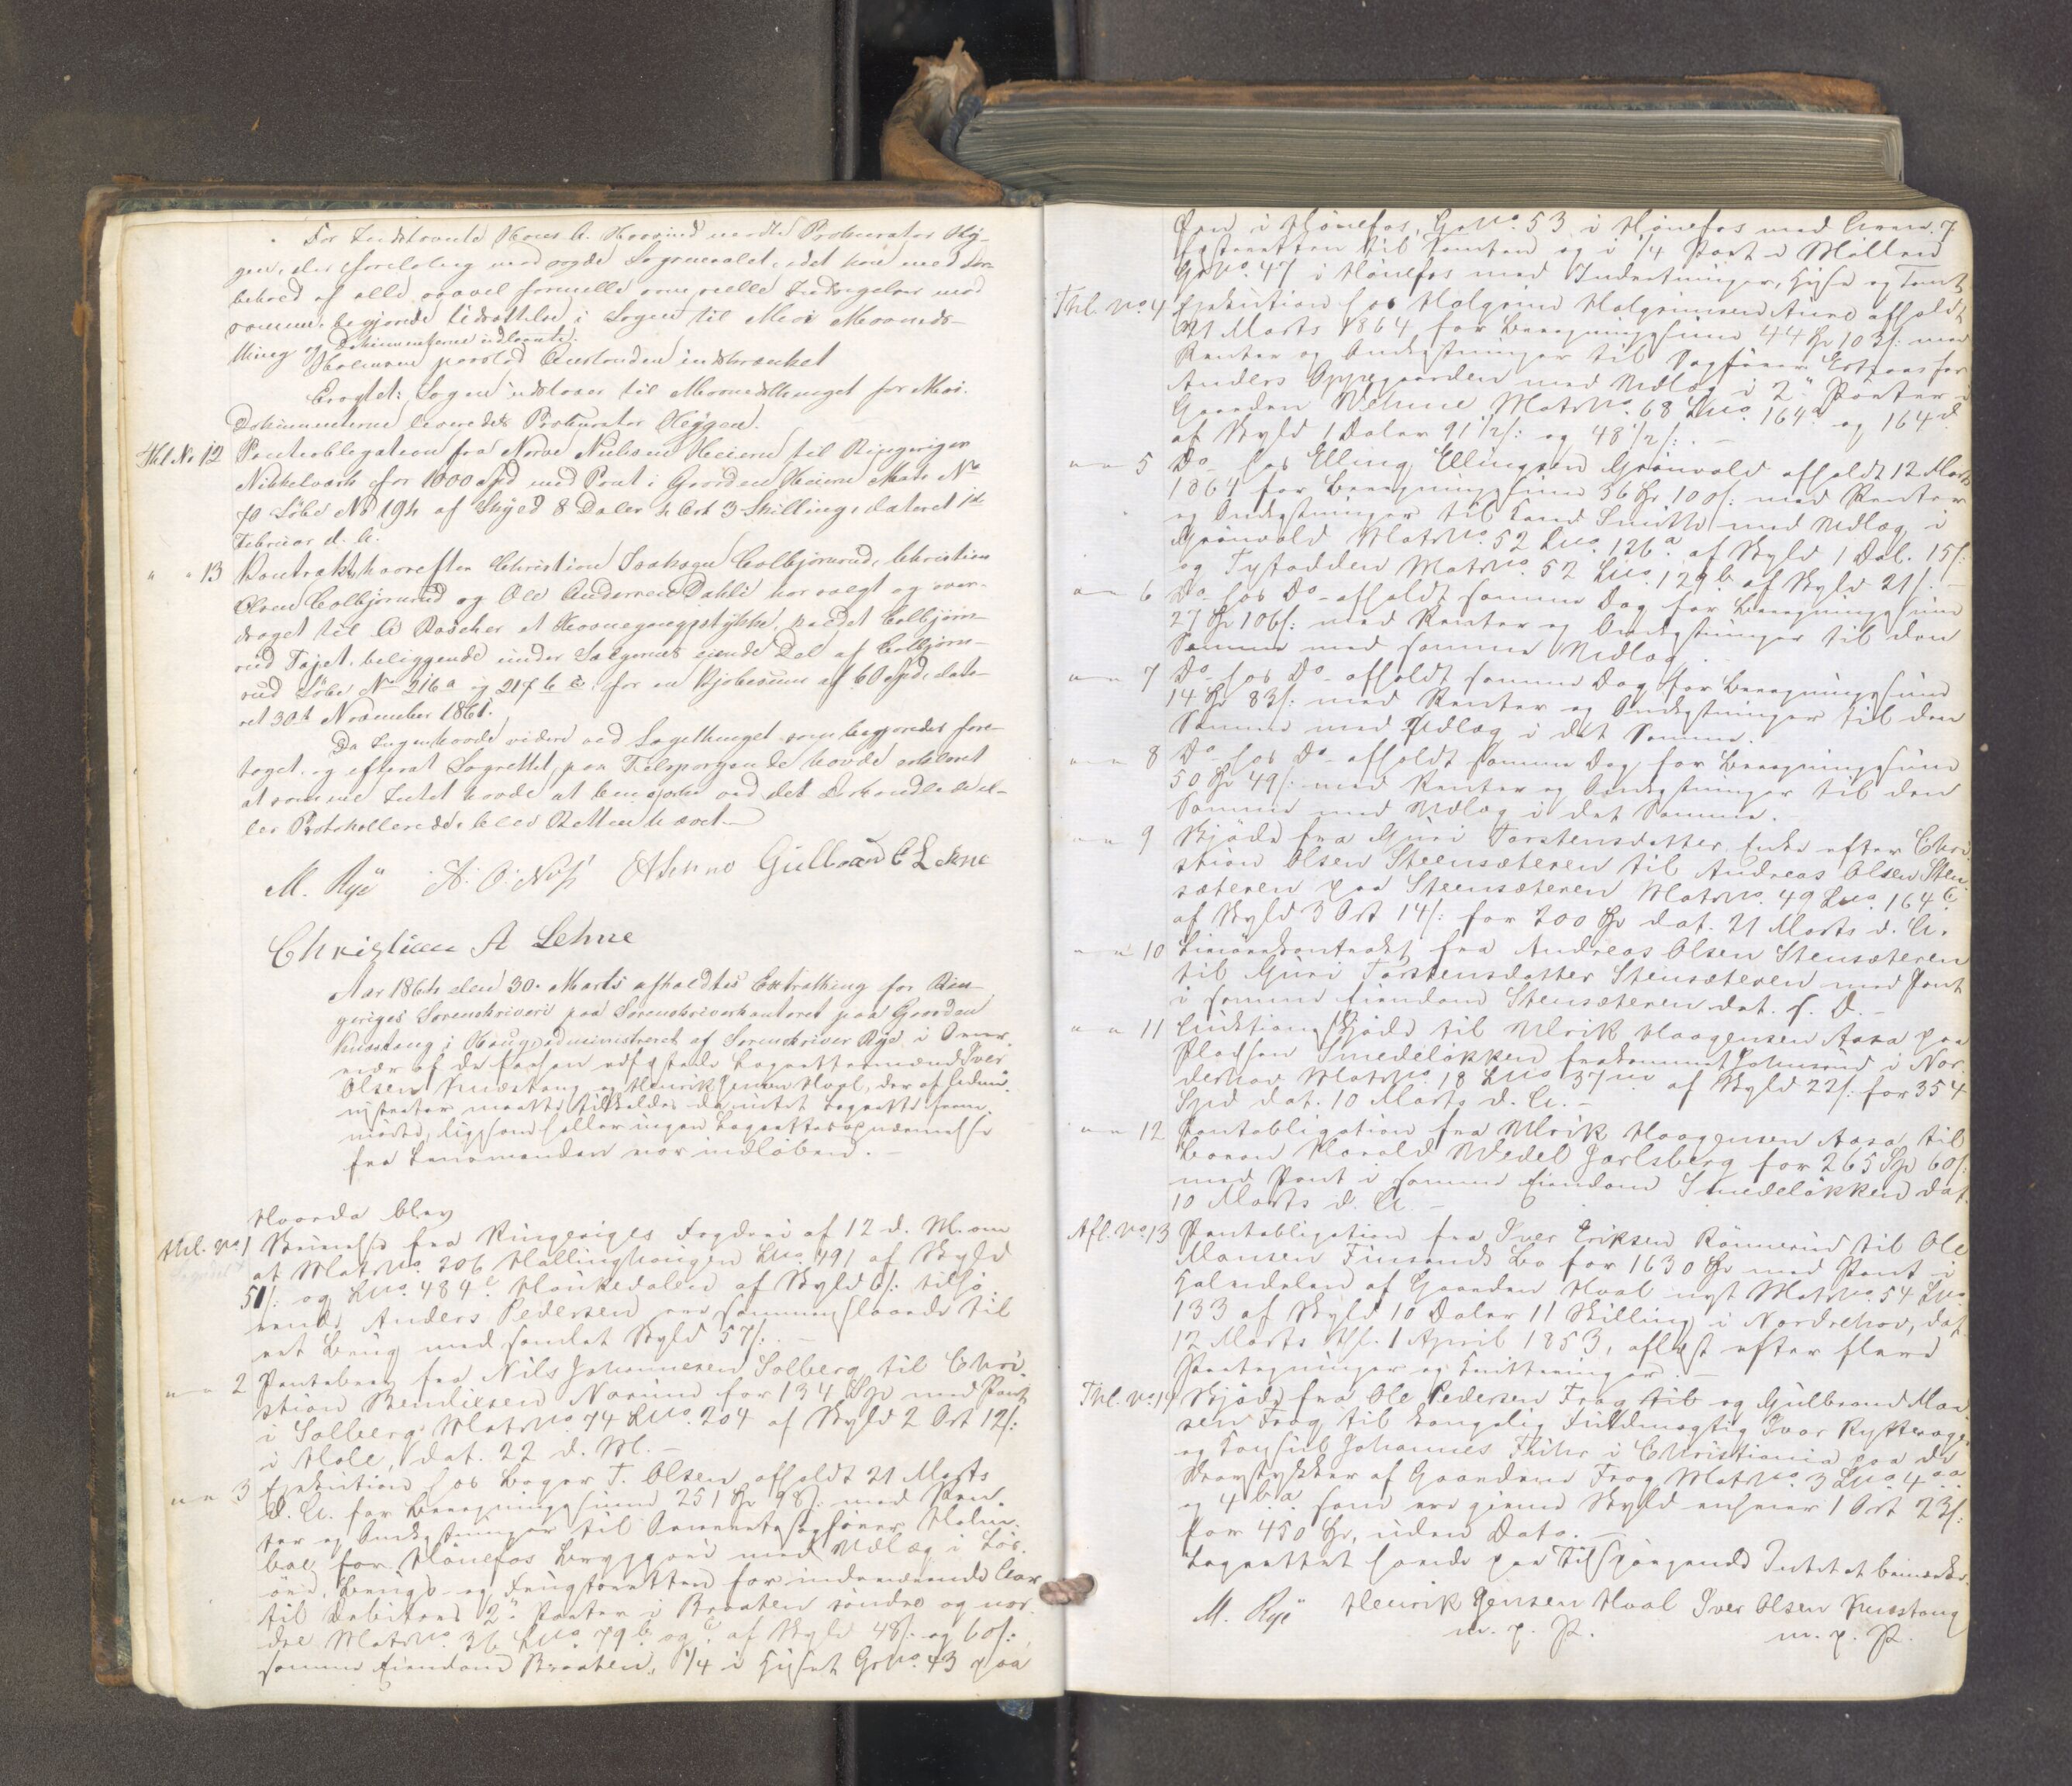 For Indstevnte Hans A. Moesind mødte Prokurator Hey-
gen, der foreløbig modsagde Søgsmaalet, idet han med For-
behold af alle saavel formelle som reelle Indsigelser mod
samme, begjærede Udsættelse i Sagen til Mai Maaneds-
thing og Dokumenterne udlaante.
Holmsen paastod Anstanden indskrænket
Eragtet: Sagen udstaaer til Maanedsthinget for Mai.
Dokumenterne leveredes Prokurator Heygen.
Thl No 12 Panteobligation fra Narve Nielsen Heieren til Ringeriges
Nikkelværk for 1000 Spd med Pant i Gaarden Heieren Matr No
70 Løbe No 194 af Skyld 8 Daler 2 Ort 3 Skilling, dateret 1ste
Februar d. A.
" " 13 Kontrakt, hvorefter Christian Isaksen Colbjørnrud, Christian
Olsen Colbjørnrud og Ole Andersen Dahle har solgt og over-
draget til A Roscher et Havnegangsstykke, kaldet Colbjørn-
rud Tajet, beliggende under Sælgernes eiende Del af Colbjørn-
rud Løbe No 216a og 217 b & c for en Kjøbesum af 60 Spd, date-
ret 30te November 1861.
Da Ingen havde videre ved Sagethinget som begjæredes fore-
taget og efterat Lagrettet, paa Tilspørgende havde erklæret
at samme Intet havde at bemærke ved det Forhandlede el-
ler Protokollerede, blev Retten hævet
M. Rye A. O. Næs Gulbrand C Lehne
Christian A Lehne
Aar 1864 den 30. Marts afholdtes Extrathing for Rin-
geriges Sorenskriveri paa Sorenskriverkontoret paa Gaarden
Knestang i Haug, administreret af Sorenskriver Rye i Over-
vær af de Lagrettesmænd Iver
Olsen Knestang og Henrik Jensen Hval, der af Admi-
nistrator maatte tilkaldes da intet Lagrette frem-
mødte, ligesom heller ingen Lagrettesopnævnelse
fra Lensmanden var indløben. —
Hvorda blev
Thl. No. 1 Skrivelse fra Ringeriges Fogderi af 12 d. M. om
at Matr No. 206 Hallinghaugen L No. 491 af Skyld
51 s: og L No. 484 c Haukedalen af Skyld 6 s: tilhø-
rende Anders Pedersen ere sammenslaaede til
eet Brug med samlet Skyld 57 s: —
" " 2 Pantebrev fra Nils Johannesen Solberg til Chri-
stian Bendixen Norum for 134 Spd med Pant
i Solberg Matr No 74 L No. 204 af Skyld 2 Ort 12 s:
i Hole, dat. 22 d. M. —
" " 3 Exekution hos Bager T. Olsen afholdt 21 Marts
d. A. for Beregningssum 251 Spd 98 s: med Ren-
ter og Omkostninger til Overretssagfører Holm-
boe for Hønefos Bryggeri med Udlæg i Løs-
øre, Brugs- og Frugtsretten for indeværende Aar
til Debitors 2de Parter i Braaten søndre og nor-
dre Matr No. 36 L No. 79 b og c af Skyld 48 s: og 60 s:,
samme Eiendom Braaten, 1/4 i Huset G No. 43 paa
Øen i Hønefos, G No. 53 i Hønefos med Anno. 7
Festeretten til Tomten og i 1/4 Part i Møllen
G No. 47 i Hønefos med Indretninger, Huse og Tomt
Thl. No. 4 Exekution hos Halgrim Halgrimsen Aure afholdt
21 Marts 1864 for Beregningssum 44 Spd 103 s: med
Renter og Omkostninger til Sagfører for
Anders Oppegaarden med Udlæg i 2de Parter i
Gaarden Velme Matr No. 68 L No. 164 a og 164 d
af Skyld 1 Daler 91 1/2 s: og 48 1/2 s: —
" " 5 Do hos Elling Ellingsen Grønvold afholdt 12 Marts
1864 for Beregningssum 36 Spd 100 s: med Renter
og Omkostninger til Smith med Udlæg i
Grønvold Matr No. 52 L No. 126 a af Skyld 1 Dal. 15 s:
og Tystadden Matr No. 52 L No. 129 b af Skyld 21 s: —
" " 6 Do hos Do afholdt samme Dag for Beregningssum
27 Spd 106 s: med Renter og Omkostninger til den
Samme med samme Udlæg.
" " 7 Do hos Do afholdt samme Dag for Beregningssum
14 Spd 83 s: med Renter og Omkostninger til den
Samme med Udlæg i det Samme.
" " 8 Do hos Do afholdt samme Dag for Beregningssum
50 Spd 49 s: med Renter og Omkostninger til den
Samme med Udlæg i det Samme.
" " 9 Skjøde fra Guri Torstensdatter Enke efter Chri-
stian Olsen Steensæteren til Andreas Olsen Sten-
sæteren paa Steensæteren Matr No. 49 L No. 164 c
af Skyld 3 Ort 14 s: for 200 Spd dat. 21 Marts d. A.
" " 10 Livørekontrakt fra Andreas Olsen Stensæteren
til Guri Torstensdatter Stensæteren med Pant
i samme Eiendom Stensæteren dat. s. D. —
" " 11 Auktionsskjøde til Ulrik Haagensen Aasa paa
Pladsen Smedeløkken frakommet Johnsrud i Nor-
derhov Matr No. 18 L No 37 m af Skyld 22 s: for 354
Spd dat. 10 Marts d. A. —
" " 12 Pantobligation fra Ulrik Haagensen Aasa til
Baron Harald Wedel Jarlsberg for 265 Spd 60 s:
med Pant i samme Eiendom Smedeløkken dat.
10 Marts d. A. —
Afl. No. 13 Pantobligation fra Iver Eriksen Rønnerud til Ole
Hansen Finsands Bo for 1630 Spd med Pant i
Halvdelen af Gaarden Hval nyt Matr No. 54 L No.
133 af Skyld 10 Daler 11 Skilling i Norderhov, dat.
12 Marts thl. 1 April 1853, aflæst efter flere
Paategninger og Kvitteringer. —
Thl. No. 14 Skjøde fra Ole Pedersen Frog til og Gulbrand Han-
sen Frog til kongelig Fuldmægtig Ivar Rytterager
og Konsul Johannes Fuhr i Christiania paa de
Skovstykker af Gaardene Frog Matr No. 3 L No. 4 a a
og 4 b a som ere givne Skyld enhver 1 Ort 23 s:
for 450 Spd, uden Dato. —
Lagrettet havde paa Tilspørgende Intet at bemærke.
M. Rye Henrik Jensen Hval Iver Olsen Knestang
m. p. P. m. p. P.